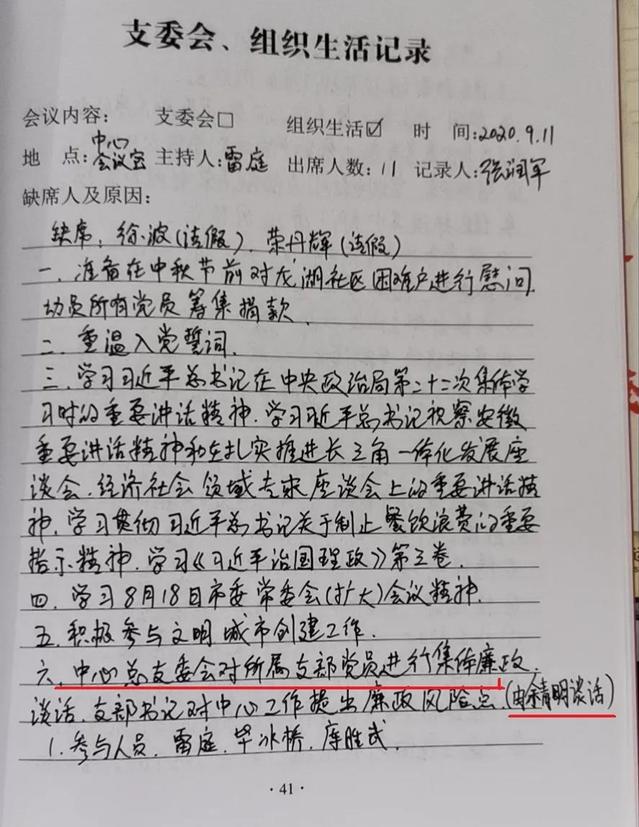 支委会、组织生活记录
会议内容: 支委会□ 组织生活☑ 时 间:2020.9.11
地 点:中心会议室 主持人:雷庭 出席人数:11 记录人:张润军
缺席人及原因:
缺席:徐波(请假)、荣丹辉(请假)
一、准备在中秋节前对龙湖社区困难户进行慰问,
动员所有党员筹集捐款.
二、重温入党誓词.
三、学习习近平总书记在中央政治局第二十二次集体学
习时的重要讲话精神.学习习近平总书记视察安徽
重要讲话精神和在扎实推进长三角一体化发展座
谈会、经济社会领域专家座谈会上的重要讲话精
神.学习贯彻习近平总书记关于制止餐饮浪费的重要
指示精神.学习《习近平治国理政》第三卷.
四、学习8月18日市委常委会(扩大)会议精神.
五、积极参与文明城市创建工作.
六、中心总支委会对所属支部党员进行集体廉政
谈话.支部书记对中心工作提出廉政风险点.(由余青明谈话)
1.参与人员、雷庭、毕冰桥、库胜武.
·41·